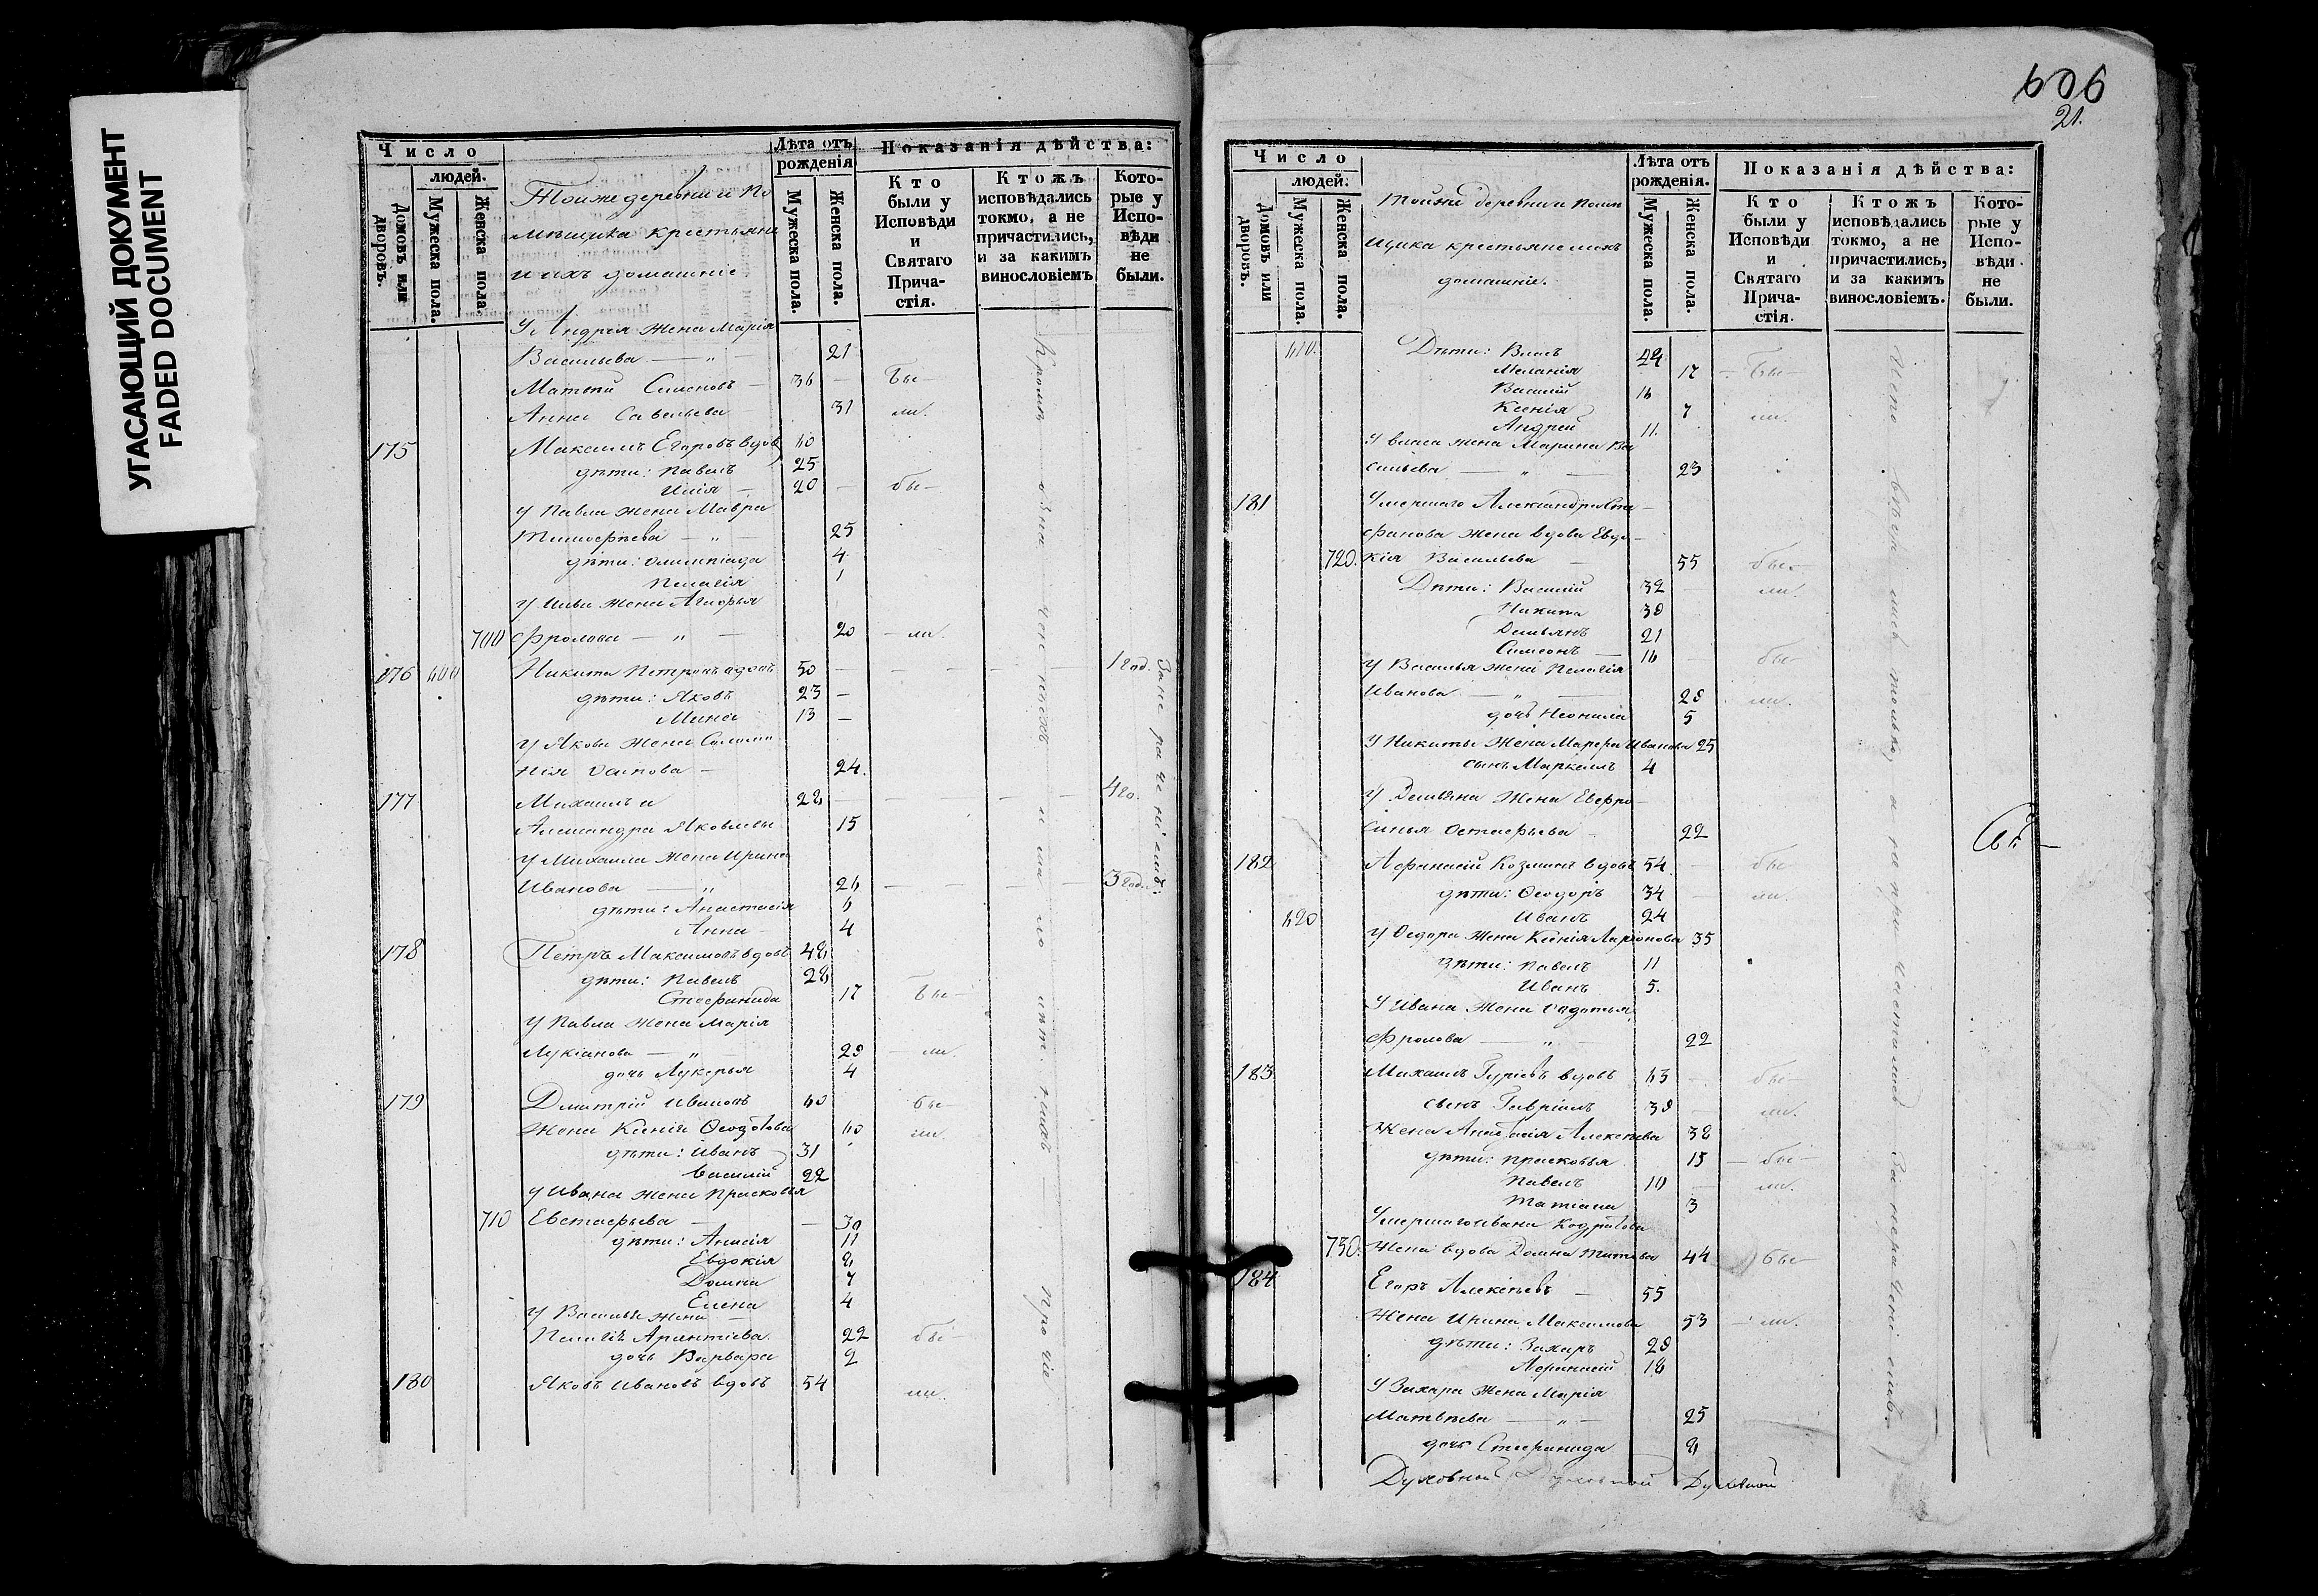 УГАСАЮЩИЙ ДОКУМЕНТ
FADED DOCUMENT
Число
людей.
Домовъ или дворовъ.
Мужеска пола.
Женска пола.
Тойже деревни и По
мѣщика крестьяне
и ихъ домашніе
Лѣта отъ рожденія
Мужеска пола.
Женска пола.
Показанія дѣйства:
Кто были у Исповѣди и Святаго Прича-стія.
Ктожъ исповѣдались токмо, а не причастились, и за какимъ винословіемъ
Кото-рые у Испо-вѣди не были.
У Андрея жена Марія
Васильева — „ 21
Матвѣй Симеоновъ — 36 — Бы—
Анна Савельева — 31 ли.
175 Максимъ Егоровъ вдов 60
дѣти: Павелъ 25
Илія — 20 — бы—
У Павла жена Мавра
Тимофѣева — „ — 25
дѣти: Олимпіада 4
Пелагія 1
У Ильи жена
700 Фролова — „ — 20 — ли.
176 600 Никита Петровъ вдовъ 50 — 1 год.
дѣти: Яковъ 23 —
Мина 13 —
У Якова жена Соломо
нія Осипова — 24.
177 Михаилъ и 28 — 4 го.
Александра Яковлевы 15
У Михаила жена Ирина
Иванова — „ 26 — 3 год.
дѣти: Анастасія 6
Анна 4
178 Петръ Максимовъ вдовъ 48
дѣти: Павелъ 28
Стефанида 17 Бы—
У Павла жена Марія
Лукіанова — „ — 29 — ли.
дочь Лукерья 4
179 Дмитрій Ивановъ 60 бы—
жена Ксенія Ѳеодотова 60 ли.
дѣти: Иванъ 31
Василій 22
У Ивана жена Прасковья
710 Евстафьева — — 30
дѣти: Анисія 11
Евдокія 8
Домна 7
Елена 4
У Василья жена —
Пелагія 22 бы—
дочь Варвара 2
180 Яковъ Ивановъ вдовъ 54 ли.
Кромѣ
Прочіе
606
21.
Число
людей.
Домовъ или дворовъ.
Мужеска пола.
Женска пола.
Тойже деревни помѣ
щика крестьяне и ихъ
домашніе.
Лѣта отъ рожденія.
Мужеска пола.
Женска пола.
Показанія дѣйства:
Кто были у Исповѣди и Святаго Прича-стія.
Ктожъ исповѣдались токмо, а не причастились, и за какимъ винословіемъ.
Кото-рые у Испо-вѣди не были.
610. Дѣти: Власъ 24
Меланія 17 — Бы—
Василій 16
Ксенія 7 ли.
Андрей 11.
У Власа жена Марина Ва
сильева — „ — 23
181 Умершаго Александра Сте—
фанова жена вдова Евдо—
720. кія Васильева — 55 бы—
Дѣти: Василій 32 — ли.
Никита
Демьянъ 21
Симеонъ — 16 — бы—
У Василья жена Пелагія
Иванова — „ — 28 ли.
дочь Неонила 5
У Никиты жена Марѳа Иванова 25
сынъ Маркелъ 4
У Демьяна жена Евфро—
синья Остафьева — 22
182 Афанасій Козминъ вдовъ 54 — бы
дѣти: Ѳеодоръ 34 — ли.
620 Иванъ 24
У Ѳедора жена Ксенія Ларіонова 35
дѣти: Павелъ 11
Иванъ 5.
У Ивана жена
Фролова — „ — 22
183 Михаилъ Гурьевъ вдовъ 63 — бы—
сынъ Гавріилъ 38 — ли.
жена Анастасія Алексѣева 38
дѣти: Прасковья 15 — бы—
Павелъ 10 — ли.
Татіана 3
Умершаго Ивана
730. жена вдова Домна Титова 44 бы—
184 Егоръ Алексѣевъ — 55
жена Ирина Максимова 53 — ли.
дѣти: Захаръ 28
Афанасій 18
У Захара жена Марія
Матвѣева — „ — 25
дочь Стефанида 8
Духовной Духовной Духовной